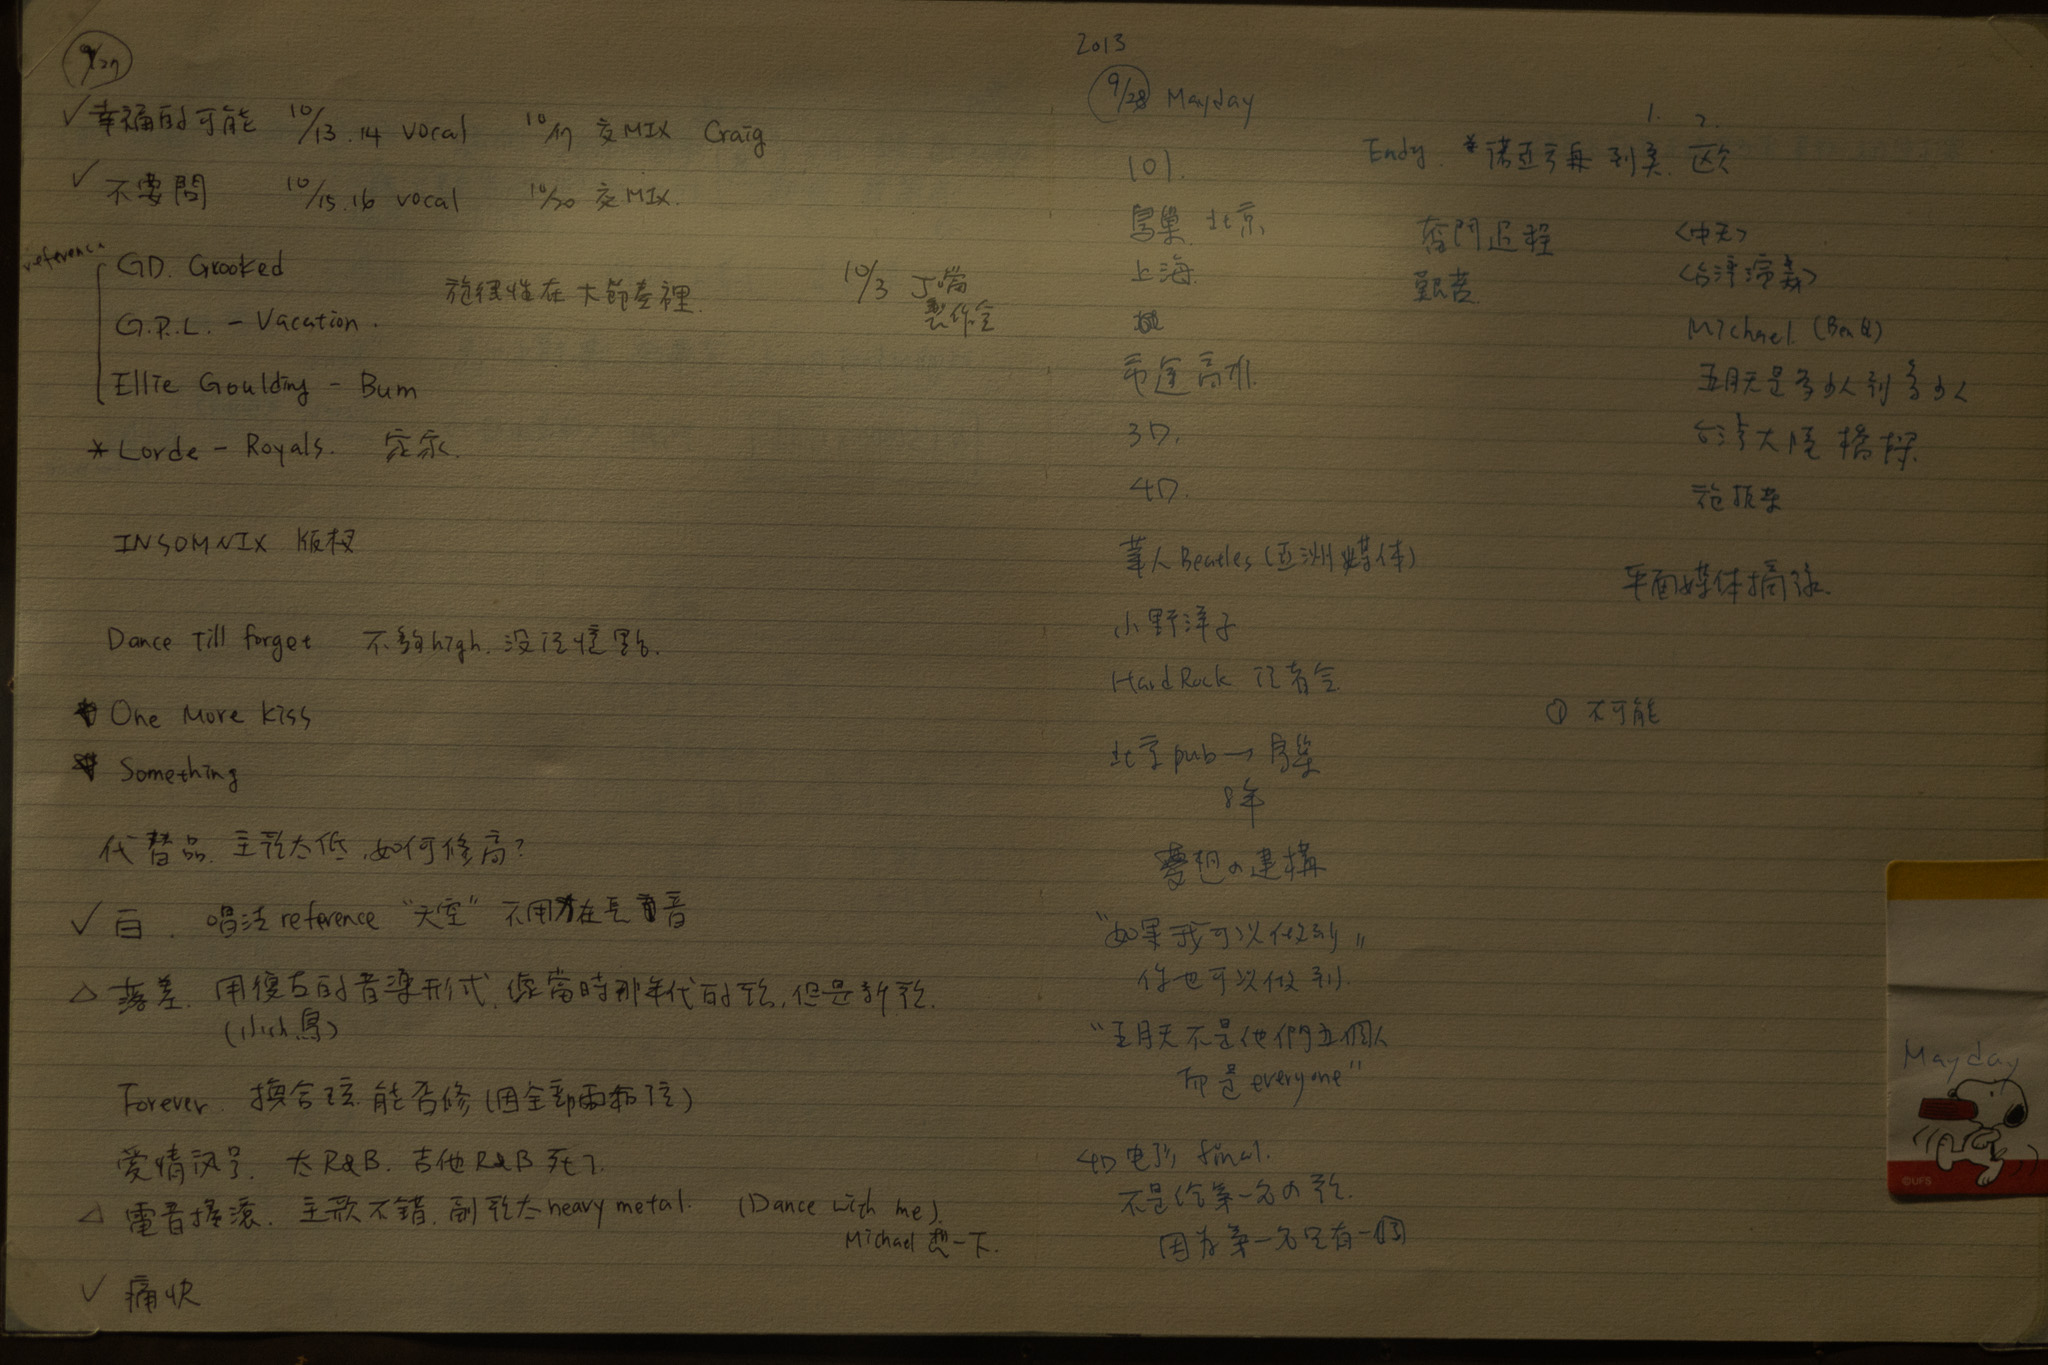 9/27
✓ 幸福的可能 10/13.14 vocal 10/17 交MIX Craig
✓ 不要問 10/15.16 vocal 10/20 交MIX.
reference
GD. Crooked
旋律性在大節奏裡.
10/3 丁噹
製作会
G.P.L. - Vacation.
Ellie Goulding - Burn
* Lorde - Royals. 家家.
INSOMNIX 版权
Dance Till forget 不夠high. 沒記憶點.
* One More Kiss
* Something
代替品. 主歌太低, 如何修高?
✓ 白. 唱法reference "天空" 不用在長音
△ 落差. 用復古的音樂形式, 像當時那年代的歌, 但是新歌.
Forever. 換合弦. 能否修
爱情 太R&B. 吉他R&B死了.
△ 電音搖滾. 主歌不錯, 副歌太heavy metal. (Dance with me).
Michael 想一下.
✓ 痛快
2013
9/28 Mayday
101.
鳥巢 北京
上海
3D.
4D.
華人Beatles (亞洲媒体)
小野洋子
Hard Rock 記者会
北京pub → 鳥巢
8年
夢想の建構
"如果我可以做到"
你也可以做到.
"五月天不是他們五個人
而是everyone"
4D电影 final.
不是給第一名の歌.
因为第一名只有一個
1. 2.
Endy. * 諾亞方舟 到美. 欧
奮鬥过程
艱苦.
<中天>
<台灣演義>
Michael
五月天是多少人到多少人
台灣大陸橋樑.
施振荣
平面媒体摘錄.
① 不可能
Mayday
©UFS